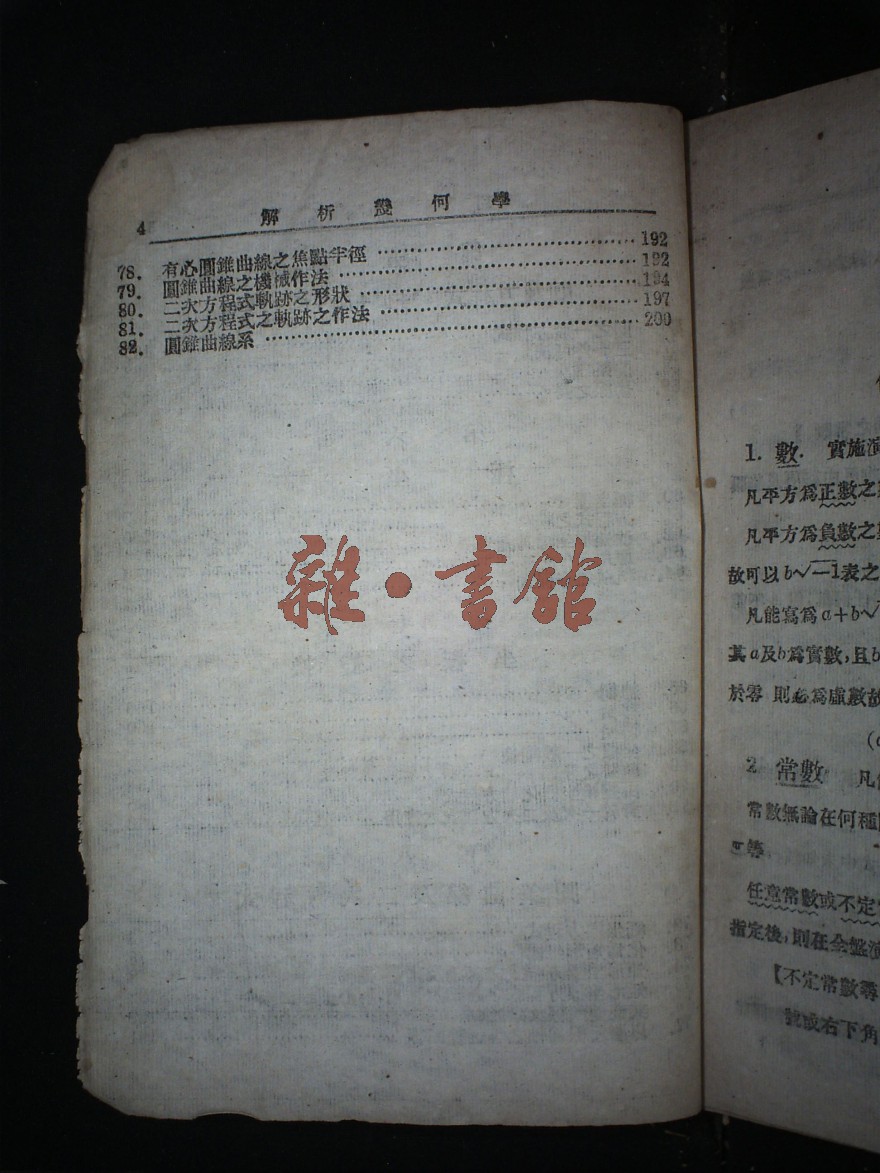 4 解析幾何學
78. 有心圓錐曲線之焦點半徑 192
79. 圓錐曲線之機械作法 192
80. 二次方程式軌跡之形狀 194
81. 二次方程式之軌跡之作法 197
82. 圓錐曲線系 200
雜·書館
1. 數. 實施演
凡平方爲正數之
凡平方爲負數之
故可以b√−1表之
凡能寫爲a+b√
其a及b爲實數,且b
於零 則必爲虛數故
2 常數 凡
常數無論在何種
π等
任意常數或不定
指定後,則在全盤演
【不定常數尋
號或右下角